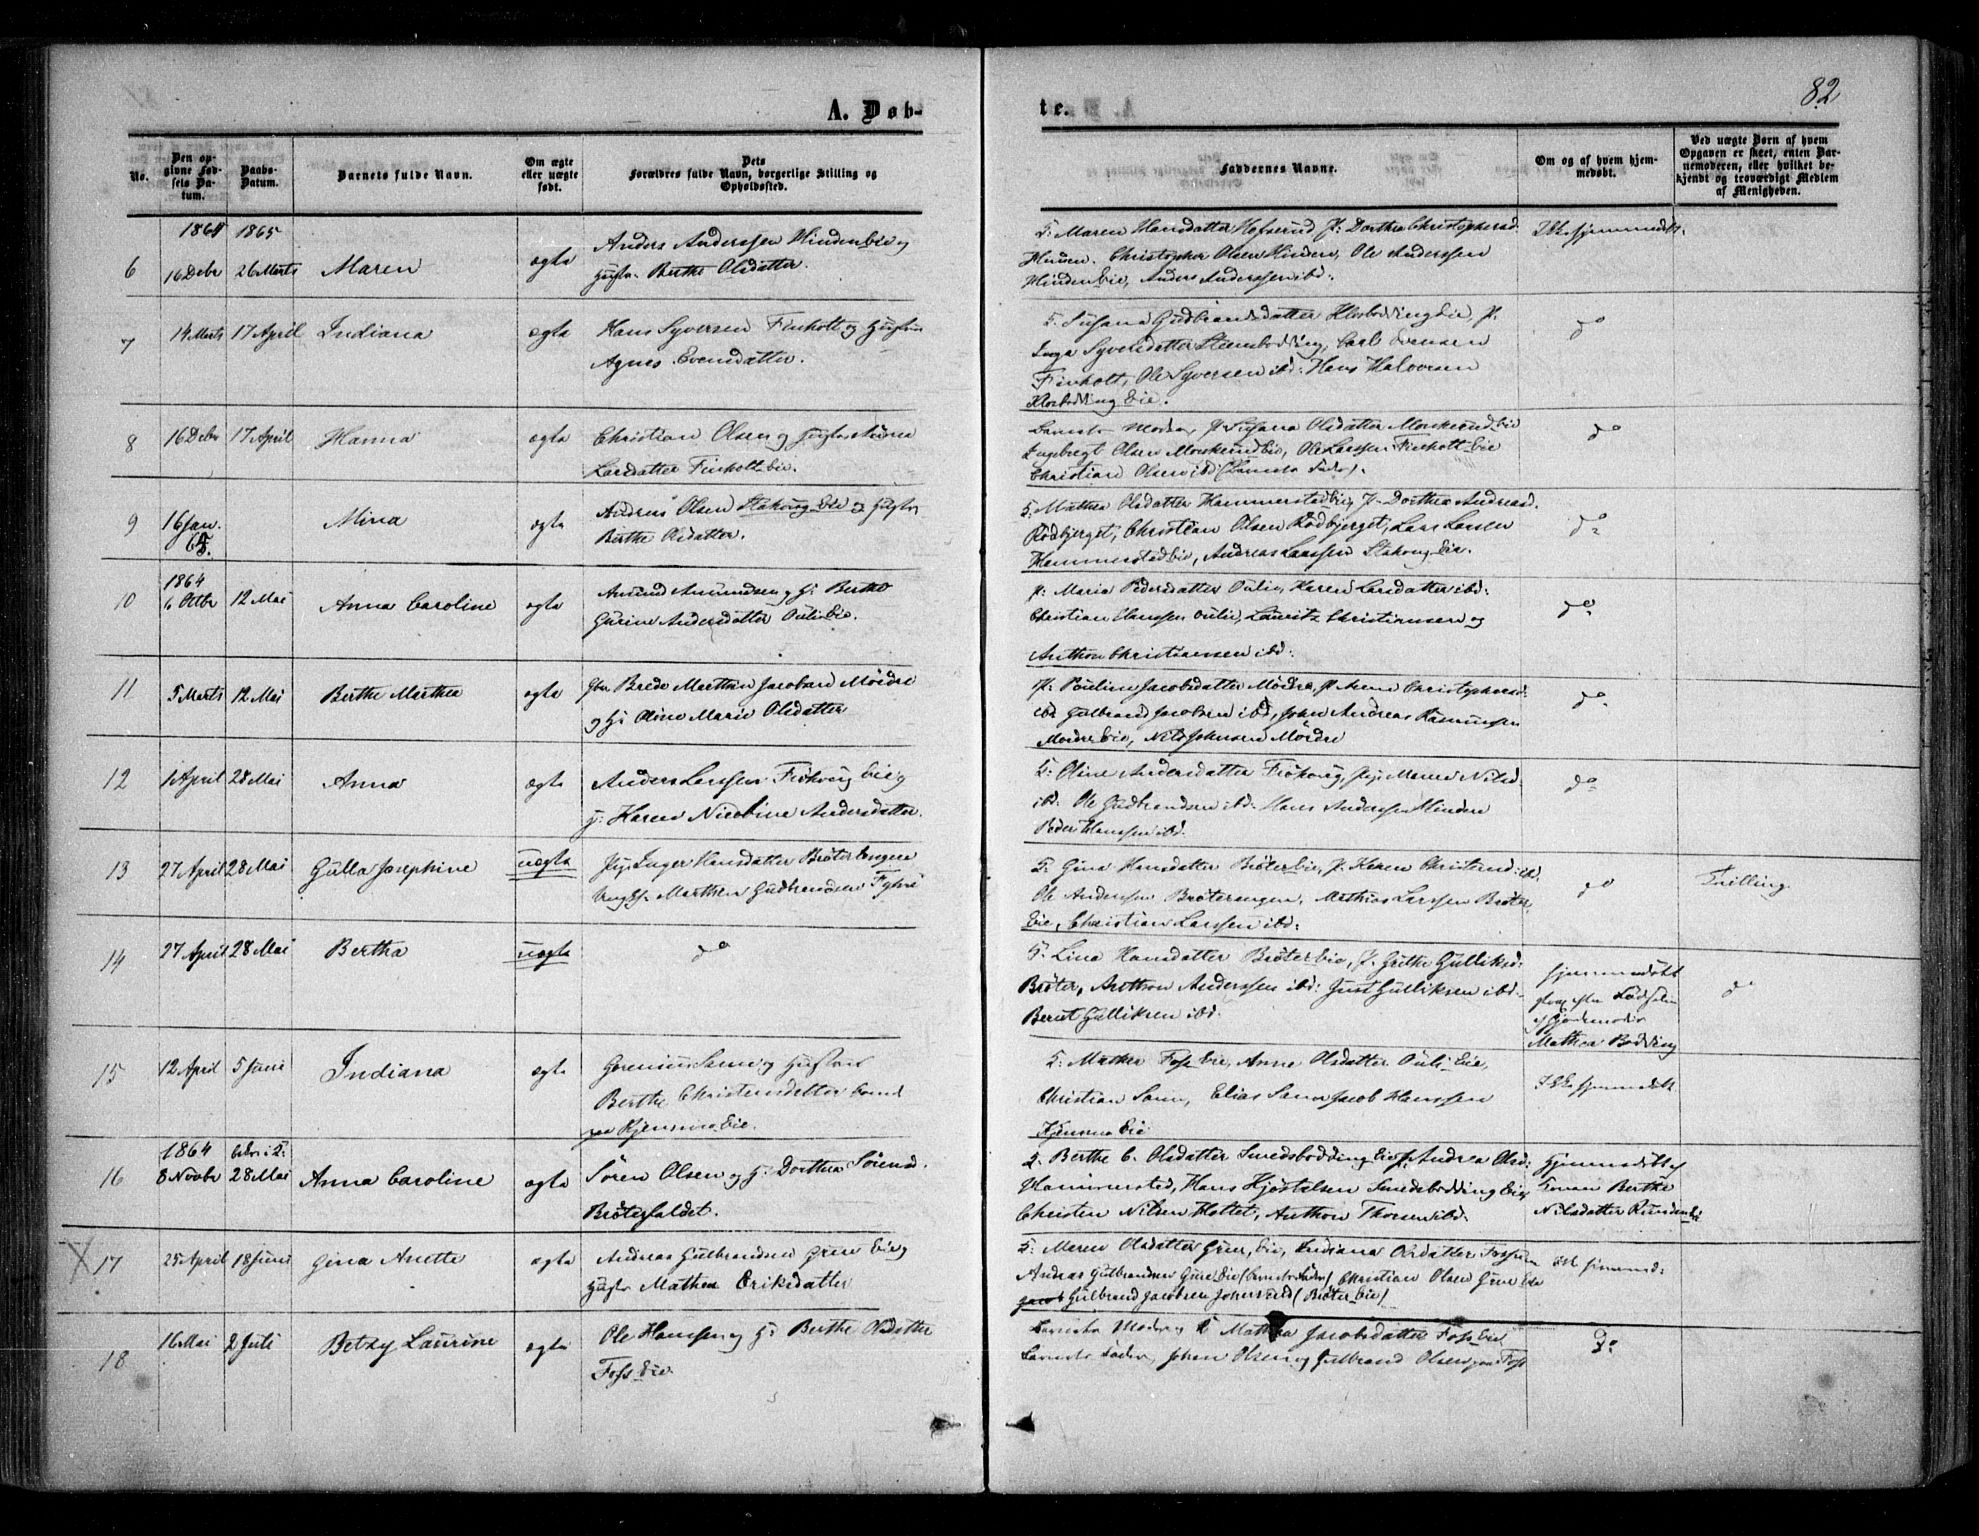 82
A. Døb-
te.
No.
Den op-
givne Fød-
sels Da-
tum.
Daabs-
Datum.
Barnets fulde Navn.
Om ægte
eller uægte
født.
Dets
Forældres fulde Navn, borgerlige Stilling og
Opholdssted.
Faddernes Navne.
Om og af hvem hjem-
medøbt.
Ved uægte Børn af hvem
Opgaven er skeet, enten Bar-
nemoderen, eller hvilket be-
kjendt og troværdigt Medlem
af Menigheden.
1864 1865
6 16 Debr 26 Marts Maren ægte
Anders Anderssen Hinden Eie og
Hustr. Berthe Olsdatter.
F: Maren Hansdatter Hofserud P: Dorthea Christophersd.
Hinden. Christopher Olsen Hinden, Ole Anderssen
Hinden Eie, Anders Anderssen ibd:
Ikke hjemmedøbt.
7 14 Marts 17 April Indiana ægte
Hans Syversen Finholt og Hustru
Agnes Evensdatter.
F. Susana Gudbrandsdatter Klosbødding Eie, P.
Inga Syversdatter Steensbødding, Carl Evensen
Finholt, Ole Syversen ibd: Hans Halvorsen
Klosbødding Eie.
do
8 16 Debr 17 April Hanna ægte
Christian Olsen og Hustr. Andrea
Larsdatter Finholt Eie.
Barnets Moder, P. Susana Olsdatter Morskerud Eie
Ingebregt Olsen Morskerud Eie, Ole Larssen Finholt Eie
Christian Olsen ibd (Barnets Fader).
do
9 16 Jan. 65. Mina ægte
Andreas Olsen Stakvug Eie og Hustr.
Berthe Olsdatter.
F: Mathea Olsdatter Hammerstad Eie, P. Dorthea Andreasd.
Rødbjerget, Christian Olsen Rødbjerget, Lars Larsen
Hammerstad Eie, Andreas Larssen Stakvug Eie.
do
1864
10 6 Octbr 12 Mai Anna Caroline ægte
Amund Amundsen og H: Berthe
Gurine Andersdatter Ouli Eie.
P: Maria Pedersdatter Ouli, Karen Larsdatter ibd:
Christian Hanssen Ouli, Lauritz Christiansen og
Anthon Christiansen ibd:
do
11 5 Marts 12 Mai Berthe Marthea ægte
Gbr. Brede Marthin Jacobsen Mördre
og H: Oline Marie Olsdatter
P: Pouline Jacobsdatter Mördre, P. Anne Christophersd.
ibd Gulbrand Jacobsen ibd, Johan Andreas Rasmussen
Mördre Eie, Nils Johnsen Mördre
do
12 1 April 28 Mai Anna ægte
Anders Larssen Frökvug Eie og
H: Karen Nicoline Andersdatter.
F: Oline Andersdatter Frökvug, Pig. Maren Nilsd.
ibd: Ole Gudbrandsen ibd: Hans Anderssen Minden
Peder Hanssen ibd.
do
13 27 April 28 Mai Gulla Josephine uægte
Pige Inger Hansdatter Bröterengen
Ungk. Marthin Gudbrandsen
F: Gina Hansdatter Bröter Eie, P. Karen Christensd: ibd.
Ole Andersen Bröterengen, Mathias Larssen Bröter
Eie, Christian Larssen ibd:
do
Tvilling
14 27 April 28 Mai Bertha uægte
do
F. Lina Hansdatter Bröter Eie, P. Grethe Gulliksd:
Bröter, Anthon Anderssen ibd: Just Gulliksen ibd.
Bernt Gulliksen ibd.
hjemmedöbt
strax efter Födselen
af Gjordemoder
Mathea Bødding
do
15 12 April 5 Juni Indiana ægte
Sann og Hustru
Berthe Christensdatter
Kjensmo Eie.
F: Mathea Foss Eie, Anne Olsdatter Ouli Eie,
Christian Sann, Elias Sann Jacob Hanssen
Kjensmo Eie
Ikke hjemmedöbt
1864
16 8 Novbr 28 Mai Anna Caroline ægte
Sören Olsen og H: Dorthea Sörensd.
Bröterfaldet.
F. Berthe C. Olsdatter Smedsbødding Eie, P: Andrea Olsd:
Hammerstad, Hans Kjöstelsen Smedsbødding Eie
Christen Nilsen Holtet, Anthon Thorsen ibd.
Hjemmedöbt af
Konen Berthe
Nilsdatter Eie
X 17 25 April 18 Juni Gina Anette ægte
Andreas Gulbrandsen Grue Eie og
Hustr. Mathea Eriksdatter
F: Maren Olsdatter Grue Eie, Indiana Olsdatter Foss
Andreas Gulbrandsen Grue Eie (Barnets Fader), Christian Olsen Grue Eie
Gulbrand Jacobsen (Bröter Eie)
ikke hjemmed:
18 16 Mai 2 Juli Betzy Laurine ægte
Ole Hanssen og H: Berthe Olsdatter
Foss Eie
Barnets Moder, P. Mathea Jacobsdatter Foss Eie
Barnets Fader, Johan Olsen og Gulbrand Olsen Foss
Do